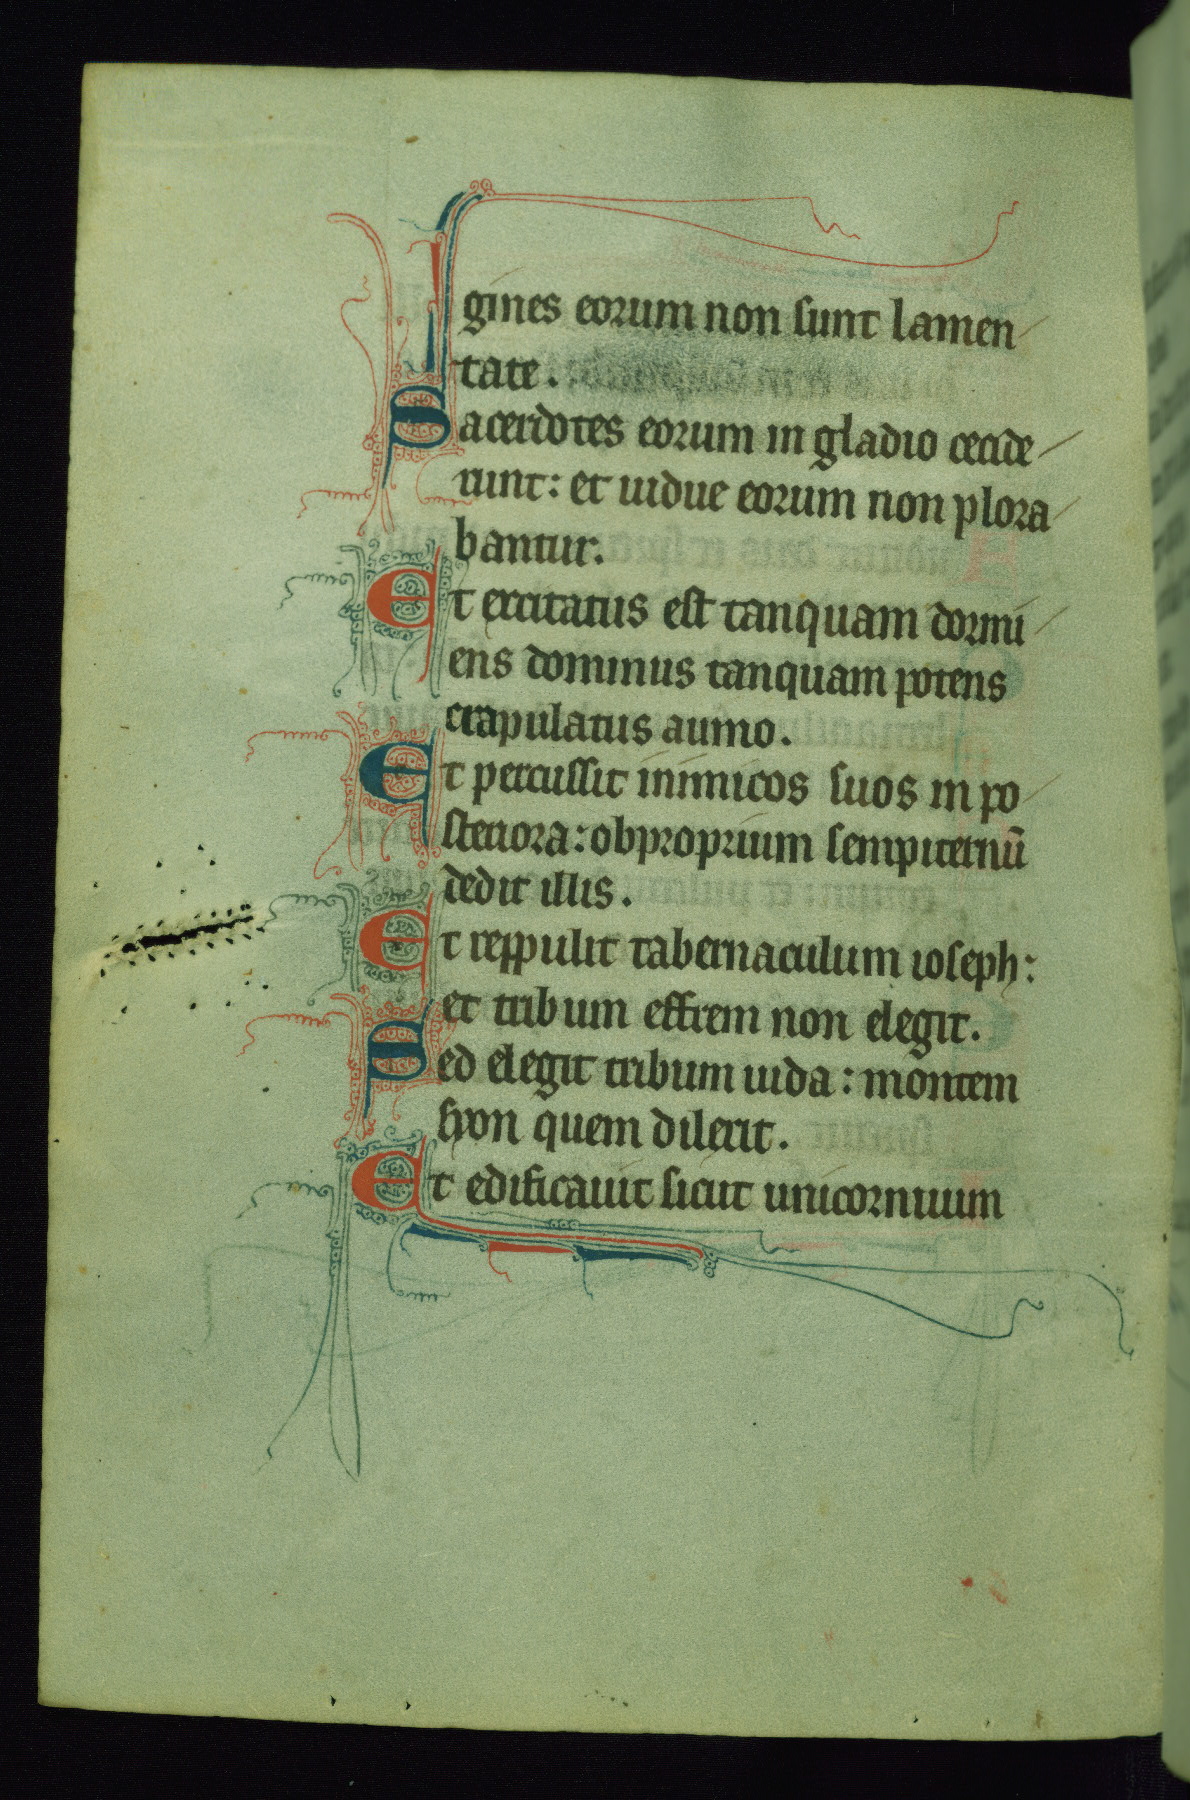 gines eorum non sunt lamen
tate.
Sacerdotes eorum in gladio cecide
runt: et uidue eorum non plora
bantur.
Et excitatus est tanquam dormi
ens dominus tanquam potens
crapulatus auino.
Et percussit inimicos suos in po
steriora: obproprium sempiternū
dedit illis.
Et reppulit tabernaculum ioseph:
et tribum effrem non elegit.
Sed elegit tribum iuda: montem
syon quem dilexit.
Et edificauit sicut unicornuum